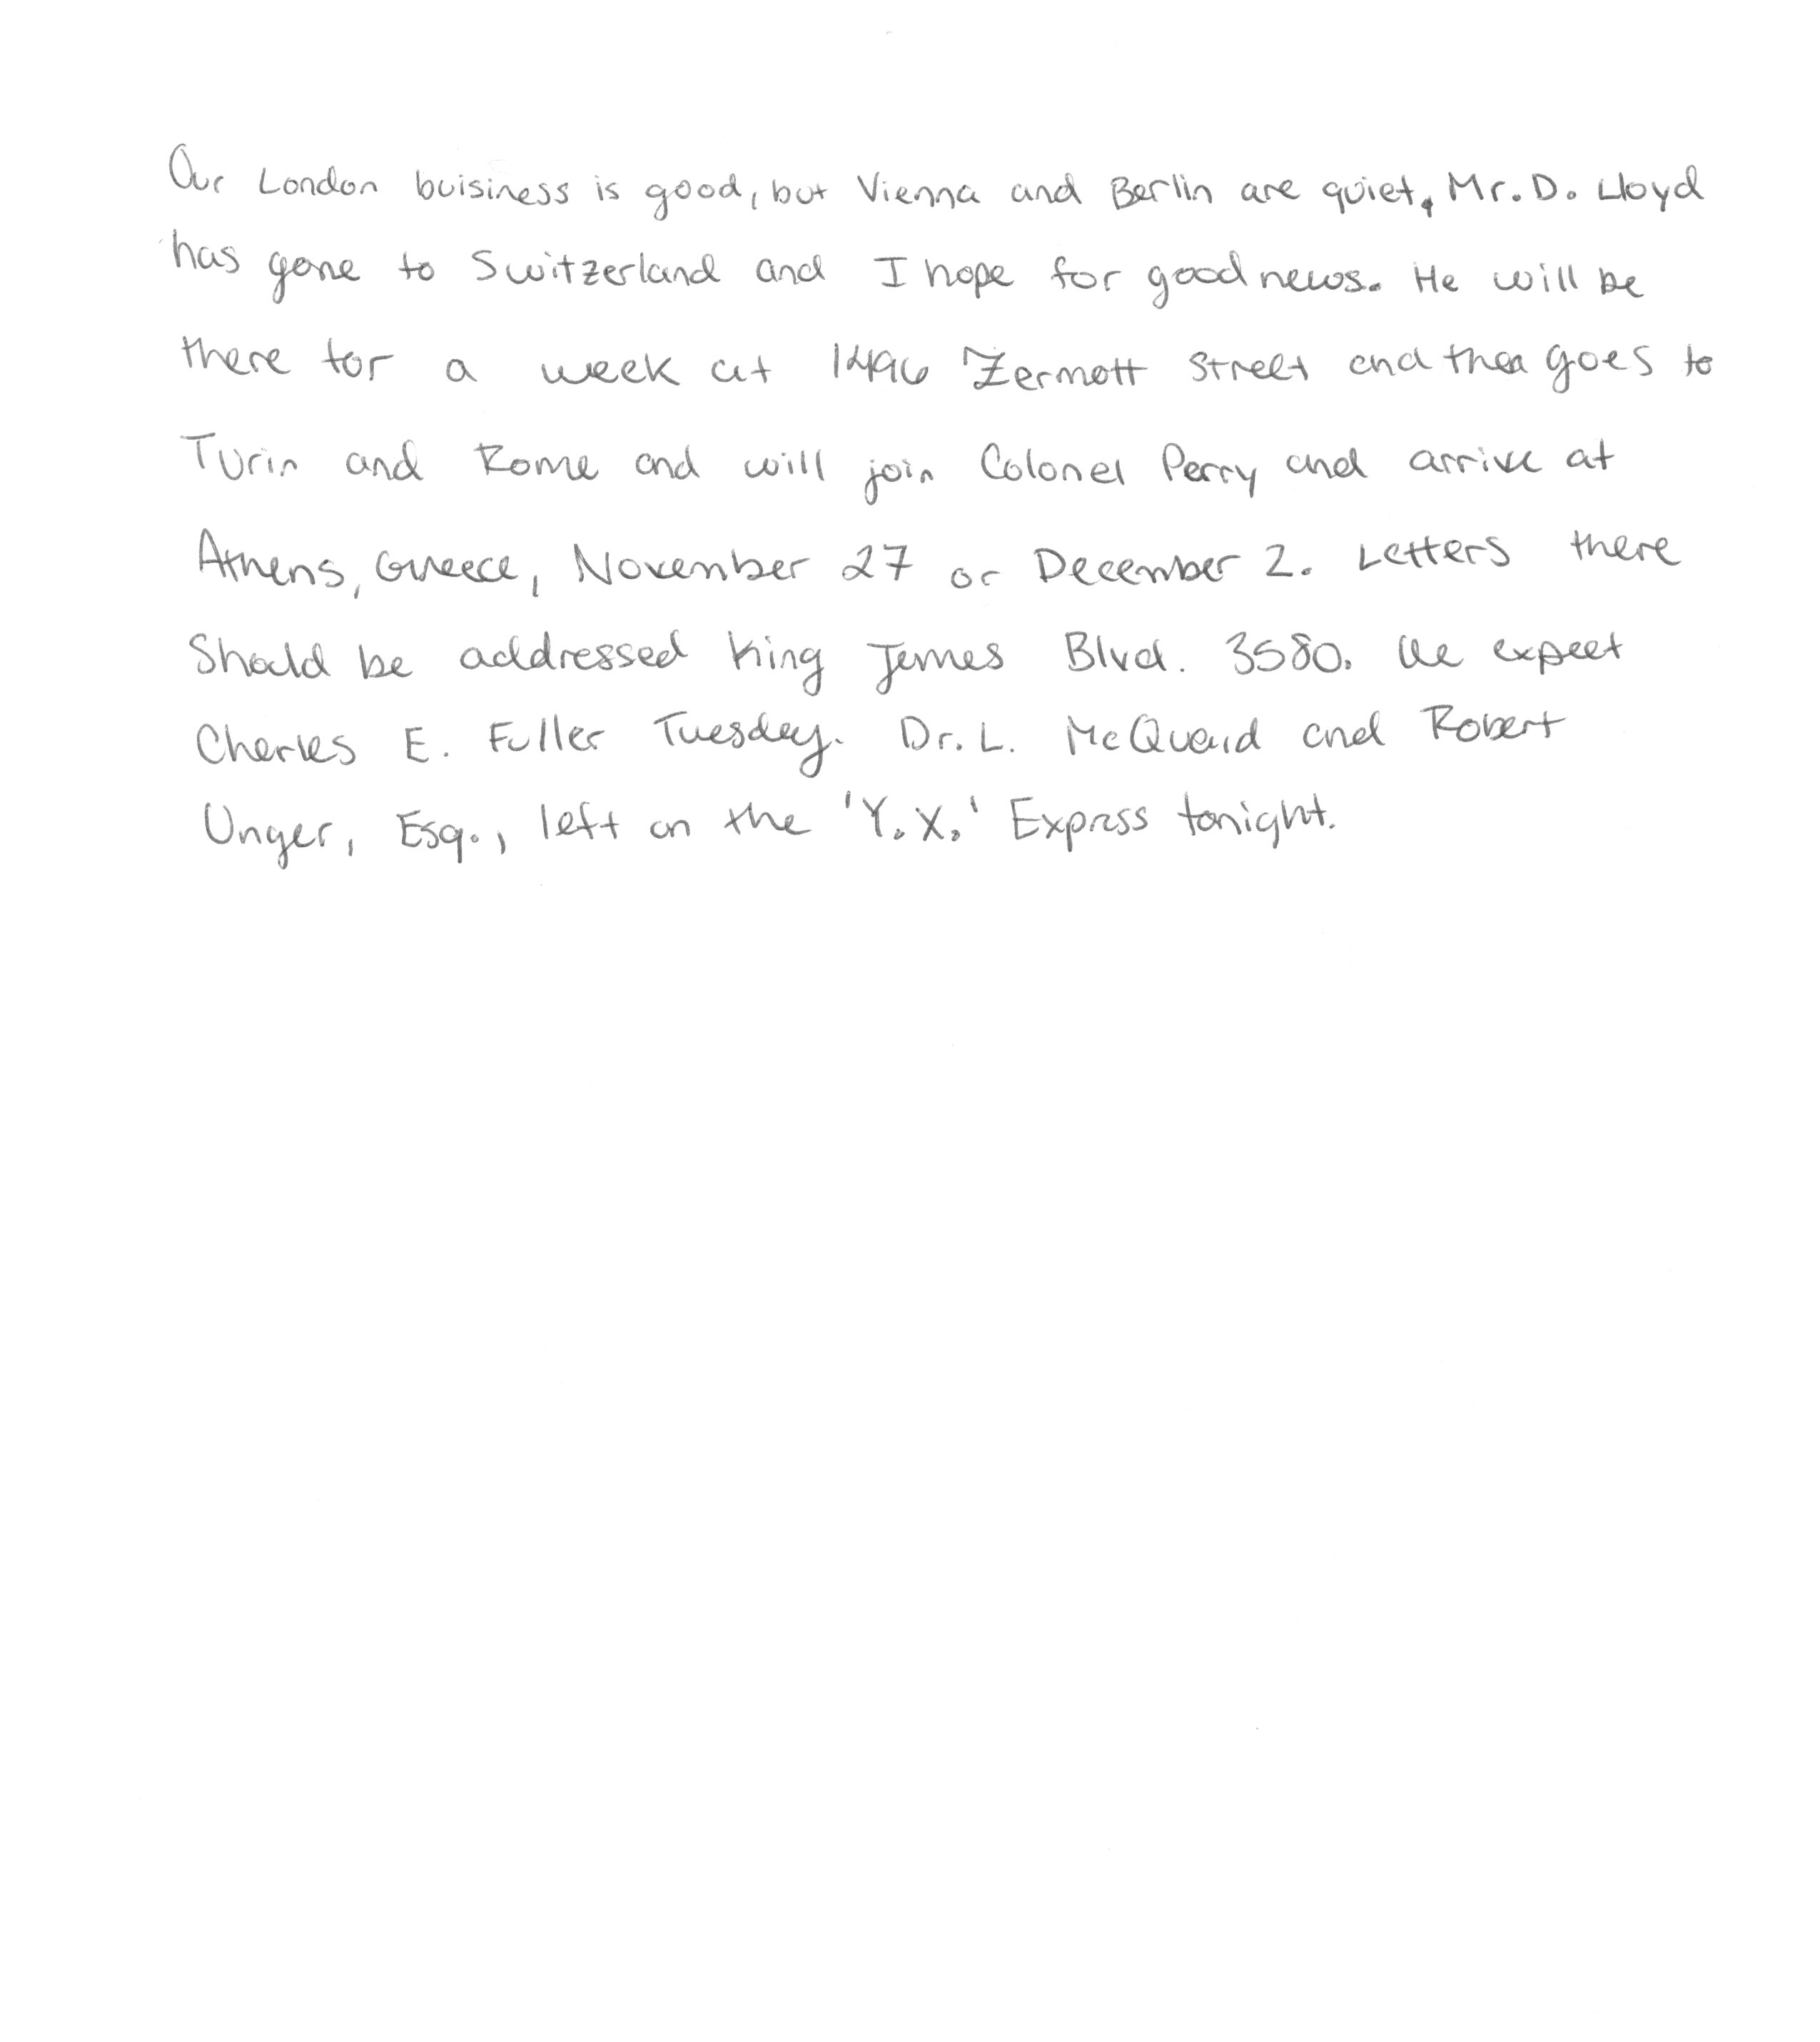 Our London buisiness is good, but Vienna and Berlin are quiet. Mr. D. Lloyd
has gone to Switzerland and I hope for good news. He will be
there for a week at 1496 Zermott Street and then goes to
Turin and Rome and will join Colonel Perry and arrive at
Athens, Greece, November 27 or December 2. Letters there
Should be addressed King James Blvd. 3580. We expect
Charles E. Fuller Tuesday. Dr. L. McQuaid and Robert
Unger, Esq., left on the 'Y.X.' Express tonight.